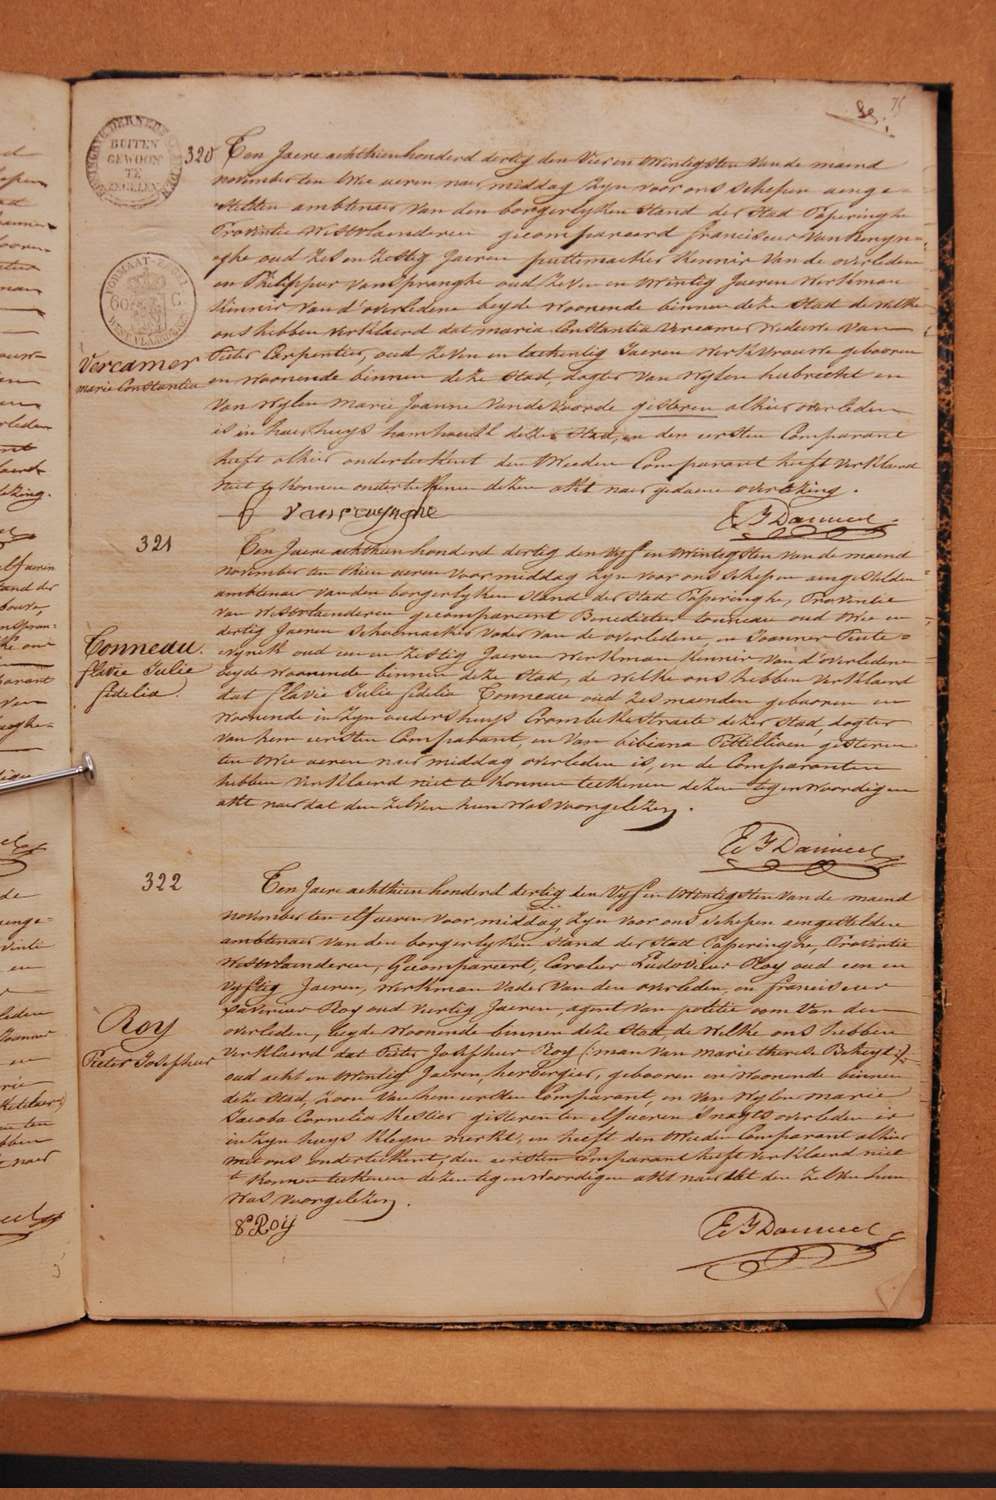 75
BUITEN
GEWOON
TE
ZEGELEN
FORMAAT-ZEGEL
60 C.
WEST VLAANDEREN
320
Vercamer
marie Constantia
Ten Jaere achthien honderd dertig den Vier en twintigsten Van de maend
november ten twee ueren naer middag Zyn voor ons schepen aenge-
stelden ambtenaer van den borgerlyken stand der Stad Poperinghe
Provintie Westvlaenderen gecompareerd franciscus Van
oud Zes en Zestig Jaeren puttemaeker kennis Van de overledene
en Philippus Vanspranghe oud Zeven en twintig Jaeren Werkman
kennis Van d'overledene beyde woonende binnen deze Stad de welke
ons hebben verklaerd dat maria Constantia Vercamer weduwe van
Pieter Carpentier, oud Zeven en tachentig Jaeren Werkvrouwe gebooren
en woonende binnen deze Stad, dogter van Wylen hubrecht en
van Wylen Marie Joanne Vandevoorde gisteren alhier overleden
is in haer huys deze Stad, en den eersten Comparant
heeft alhier onderteekent den tweeden Comparant heeft verklaerd
niet te konnen onderteekenen dezen akt naer gedaene overlezing.
321
Conneau.
flavie Julie
fidelia.
Ten Jaere achthien honderd dertig den Vyf en twintigsten Van de maend
november ten thien ueren voormiddag Zyn voor ons schepen aengestelden
ambtenaer van den borgerlyken stand der Stad Poperinghe, Provintie
van Westvlaenderen gecompareert Benedictus Conneau oud twee en
dertig Jaeren Schoenmaeker vader van de overledene, en Joannes
oud een en Zestig Jaeren Werkman kennis van d'overledene
beyde woonende binnen deze Stad, de welke ons hebben verklaerd
dat flavie Julie fidelia Conneau oud Zes maenden gebooren en
woonende in Zyn ouders huys Crombekestraete dezer Stad, dogter
van hem eersten Comparant, en van bibiana gisteren
ten twee ueren naer middag overleden is, en de Comparanten
hebben verklaerd niet te konnen teekenen dezen tegenwoordigen
akt naer dat den zelven hun was voorgelezen.
322
Roy
Pieter Josephus
Ten Jaere achthien honderd dertig den Vyf en twintigsten Van de maend
november ten elf ueren voor middag, Zyn voor ons schepen aengestelden
ambtenaer van den borgerlyken stand der Stad Poperinghe, Provintie
Westvlaenderen, Gecompareert, Carolus Ludovicus Roy oud een en
vyftig Jaeren, Werkman vader van den overleden, en franciscus
Xaverius Roy oud viertig Jaeren, agent van politie oom van den
overleden, beyde woonende binnen deze Stad, de welke ons hebben
verklaerd dat Pieter Josephus Roy (:man van marie therese :)
oud acht en twintig Jaeren, herbergier, gebooren en woonende binnen
deze Stad, zoon van hem eersten Comparant, en van Wylen marie
Jacoba Cornelia gisteren ten elf ueren s'nagts overleden is
in zyn huys kleyne merkt, en heeft den tweeden Comparant alhier
met ons onderteekent, den eersten Comparant heeft verklaerd niet
te konnen teekenen dezen tegenwoordigen akt naer dat den zelven hun
was voorgelezen.
Roy